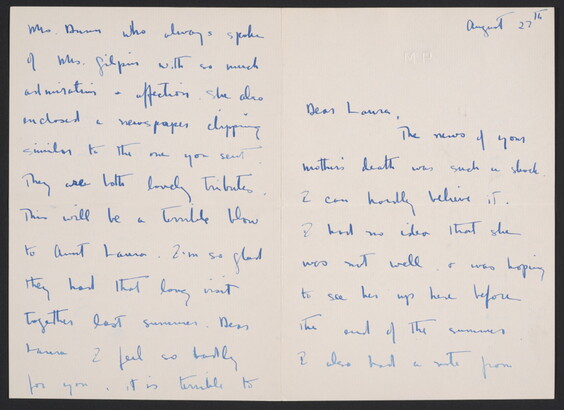 August 27th
Dear Laura,
The news of your
mother's death was such a shock.
I can hardly believe it.
I had no idea that she
was not well & was hoping
to see her up here before
the end of the summer.
I also had a note from
Mrs. Dunn who always spoke
of Mrs. Gilpin with so much
admiration & affection. She also
enclosed a newspaper clipping
similar to the one you sent.
They were both lovely tributes.
This will be a terrible blow
to Aunt Laura. I'm so glad
they had that long visit
together last summer. Dear
Laura I feel so badly
for you. it is terrible to